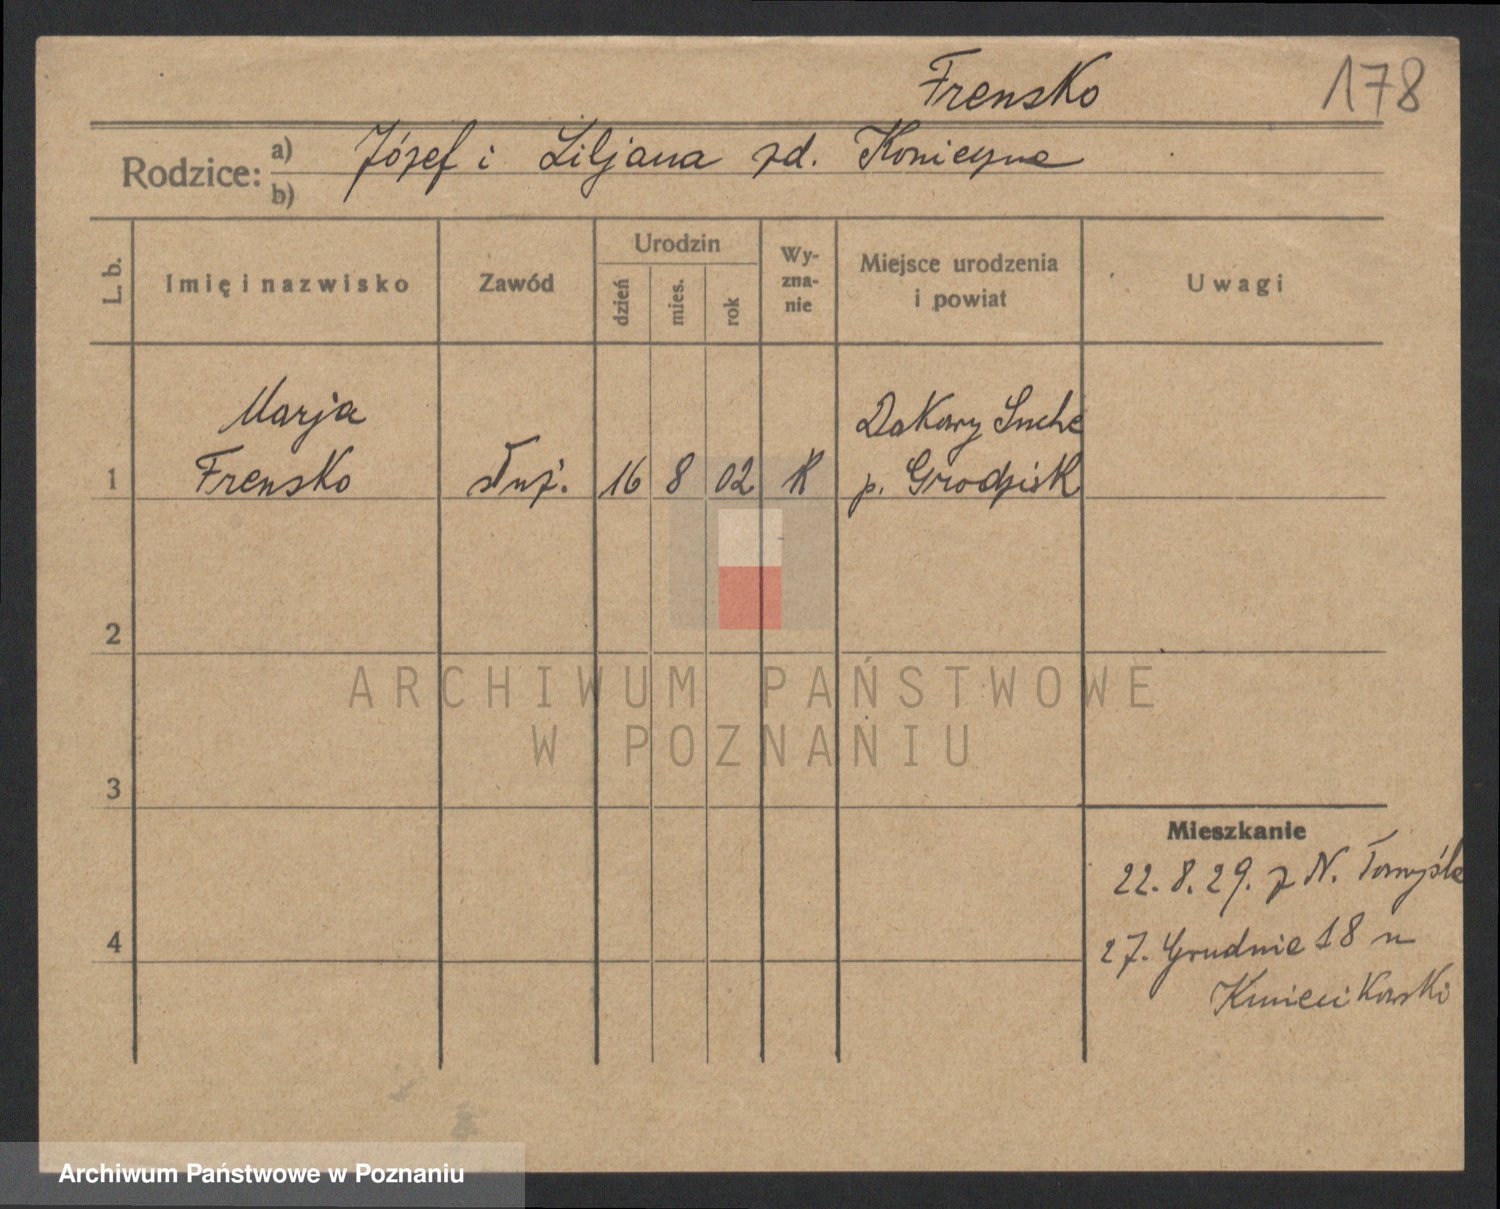 Frensko
178
Rodzice: a) Józef i Liljana zd. Konieczna
b)
L. b.
Imię i nazwisko
Zawód
Urodzin
dzień
mies.
rok
Wy-
zna-
nie
Miejsce urodzenia
i powiat
Uwagi
Marja
Frensko
1
służ.
16
8
02
R
Dakowy Suche
p. Grodzisk
2
3
4
Mieszkanie
22.8.29. z N. Tomyśla
27. Grudnia 18 u
Kmiecikowski
ARCHIWUM PAŃSTWOWE
W POZNANIU
Archiwum Państwowe w Poznaniu